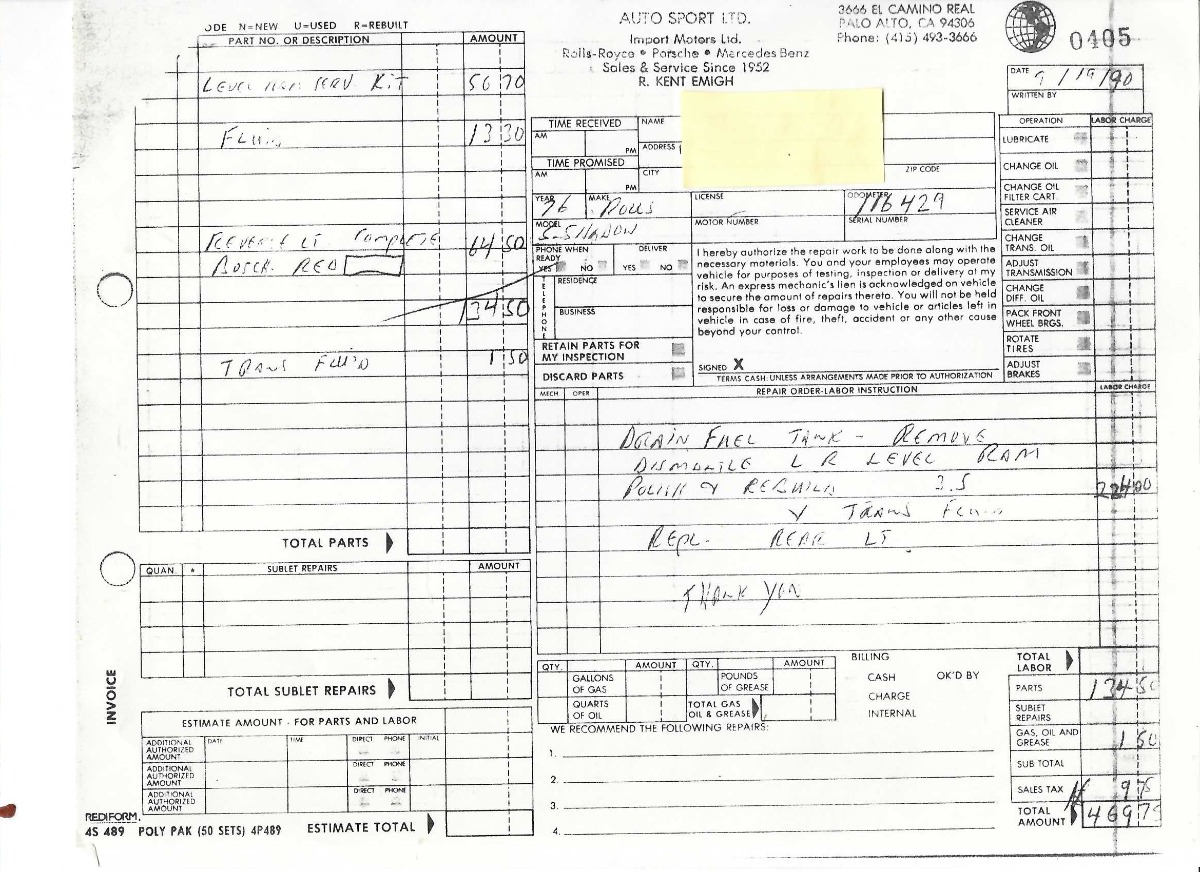 ODE N=NEW U=USED R=REBUILT
PART NO. OR DESCRIPTION AMOUNT
LEVEL SERV. KIT 56 70
FLUID 13 30
REVERSE LT COMPLETE 64 50
BOSCH RED
134 50
TRANS FLUID 1 50
TOTAL PARTS
QUAN. * SUBLET REPAIRS AMOUNT
TOTAL SUBLET REPAIRS
INVOICE
ESTIMATE AMOUNT - FOR PARTS AND LABOR
ADDITIONAL AUTHORIZED AMOUNT DATE TIME DIRECT PHONE INITIAL
ADDITIONAL AUTHORIZED AMOUNT DIRECT PHONE
ADDITIONAL AUTHORIZED AMOUNT DIRECT PHONE
REDIFORM
4S 489 POLY PAK (50 SETS) 4P489 ESTIMATE TOTAL
AUTO SPORT LTD.
Import Motors Ltd.
Rolls-Royce • Porsche • Mercedes Benz
Sales & Service Since 1952
R. KENT EMIGH
3666 EL CAMINO REAL
PALO ALTO, CA 94306
Phone: (415) 493-3666
0405
DATE 9/19/90
WRITTEN BY
TIME RECEIVED
AM PM
TIME PROMISED
AM PM
NAME
ADDRESS
CITY
ZIP CODE
YEAR 76 MAKE ROLLS
LICENSE
ODOMETER 116429
MODEL S-SHADOW
MOTOR NUMBER
SERIAL NUMBER
PHONE WHEN READY DELIVER
YES NO YES NO
TELEPHONE
RESIDENCE
BUSINESS
RETAIN PARTS FOR MY INSPECTION
DISCARD PARTS
I hereby authorize the repair work to be done along with the
necessary materials. You and your employees may operate
vehicle for purposes of testing, inspection or delivery at my
risk. An express mechanic's lien is acknowledged on vehicle
to secure the amount of repairs thereto. You will not be held
responsible for loss or damage to vehicle or articles left in
vehicle in case of fire, theft, accident or any other cause
beyond your control.
SIGNED X
TERMS CASH: UNLESS ARRANGEMENTS MADE PRIOR TO AUTHORIZATION
OPERATION LABOR CHARGE
LUBRICATE
CHANGE OIL
CHANGE OIL FILTER CART.
SERVICE AIR CLEANER
CHANGE TRANS. OIL
ADJUST TRANSMISSION
CHANGE DIFF. OIL
PACK FRONT WHEEL BRGS.
ROTATE TIRES
ADJUST BRAKES
MECH OPER REPAIR ORDER-LABOR INSTRUCTION LABOR CHARGE
DRAIN FUEL TANK - REMOVE
DISMANTLE L R LEVEL RAM
POLISH & REBUILD 3.5 224 00
Y TRANS FLUID
REPL. REAR LT
THANK YOU
QTY. AMOUNT QTY. AMOUNT
GALLONS OF GAS POUNDS OF GREASE
QUARTS OF OIL TOTAL GAS OIL & GREASE
BILLING
CASH OK'D BY
CHARGE
INTERNAL
WE RECOMMEND THE FOLLOWING REPAIRS:
1.
2.
3.
4.
TOTAL LABOR
PARTS 134 50
SUBLET REPAIRS
GAS, OIL AND GREASE 1 50
SUB TOTAL
SALES TAX 9 75
TOTAL AMOUNT 469 75